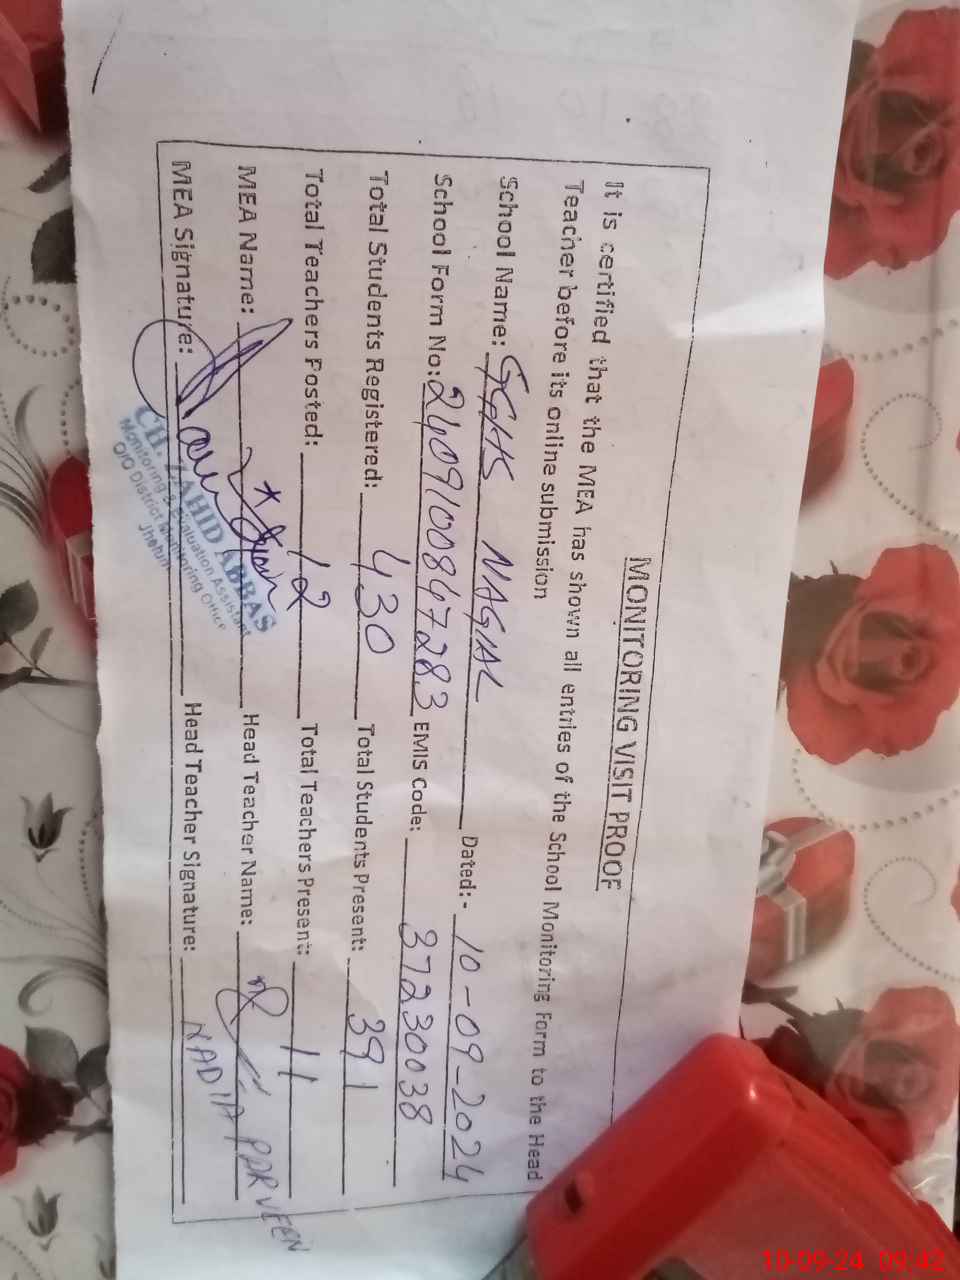 MONITORING VISIT PROOF
It is certified that the MEA has shown all entries of the School Monitoring Form to the Head
Teacher before its online submission
School Name: GGHS NAGIAL Dated:- 10-09-2024
School Form No: 2409100847283 EMIS Code: 37230038
Total Students Registered: 430 Total Students Present: 391
Total Teachers Posted: 12 Total Teachers Present: 11
MEA Name: Head Teacher Name:
MEA Signature: Head Teacher Signature: NADIA PARVEEN
CH. ZAHID ABBAS
Monitoring & Evaluation Assistant
O/O District Monitoring Office
Jhelum
10-09-24 09:42